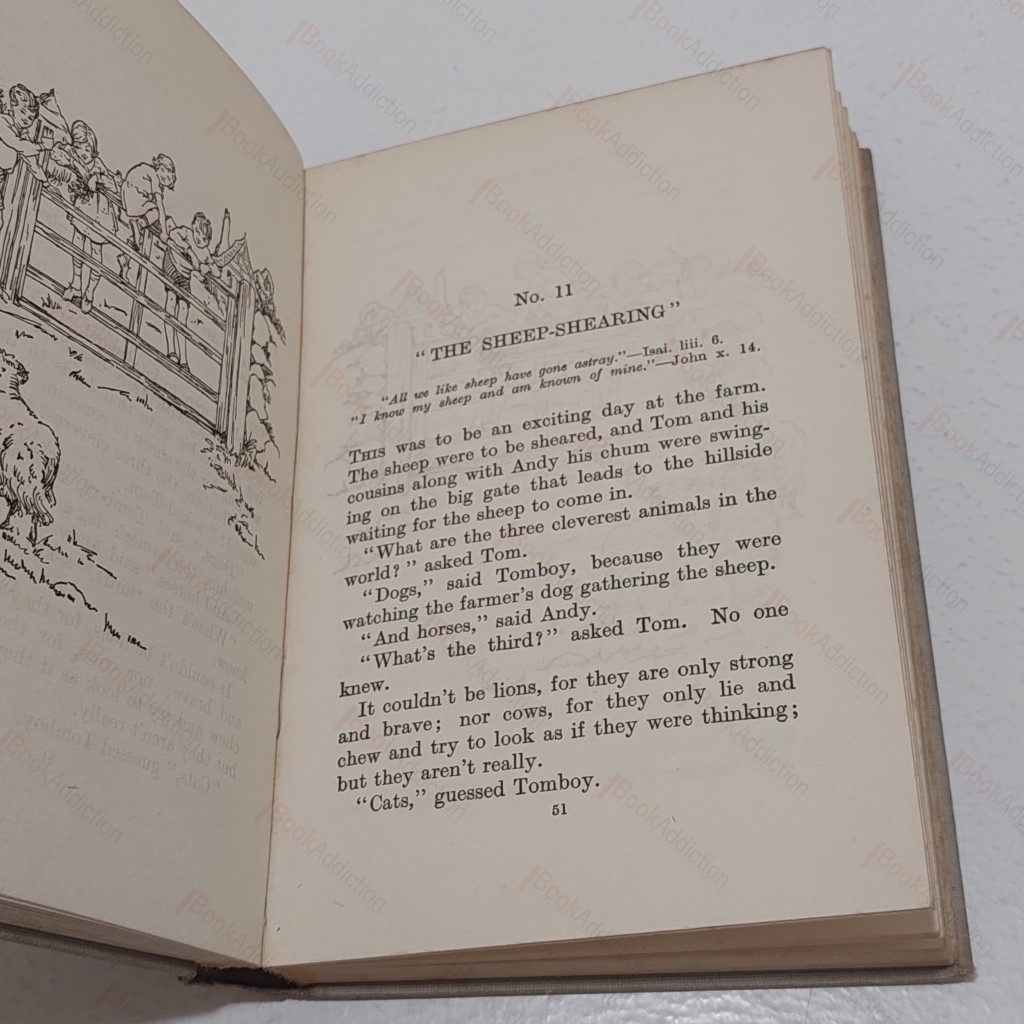 No. 11
"THE SHEEP-SHEARING"
"All we like sheep have gone astray."—Isai. liii. 6.
"I know my sheep and am known of mine."—John x. 14.
THIS was to be an exciting day at the farm.
The sheep were to be sheared, and Tom and his
cousins along with Andy his chum were swing-
ing on the big gate that leads to the hillside
waiting for the sheep to come in.
"What are the three cleverest animals in the
world?" asked Tom.
"Dogs," said Tomboy, because they were
watching the farmer's dog gathering the sheep.
"And horses," said Andy.
"What's the third?" asked Tom. No one
knew.
It couldn't be lions, for they are only strong
and brave; nor cows, for they only lie and
chew and try to look as if they were thinking;
but they aren't really.
"Cats," guessed Tomboy.
51
BookAddiction